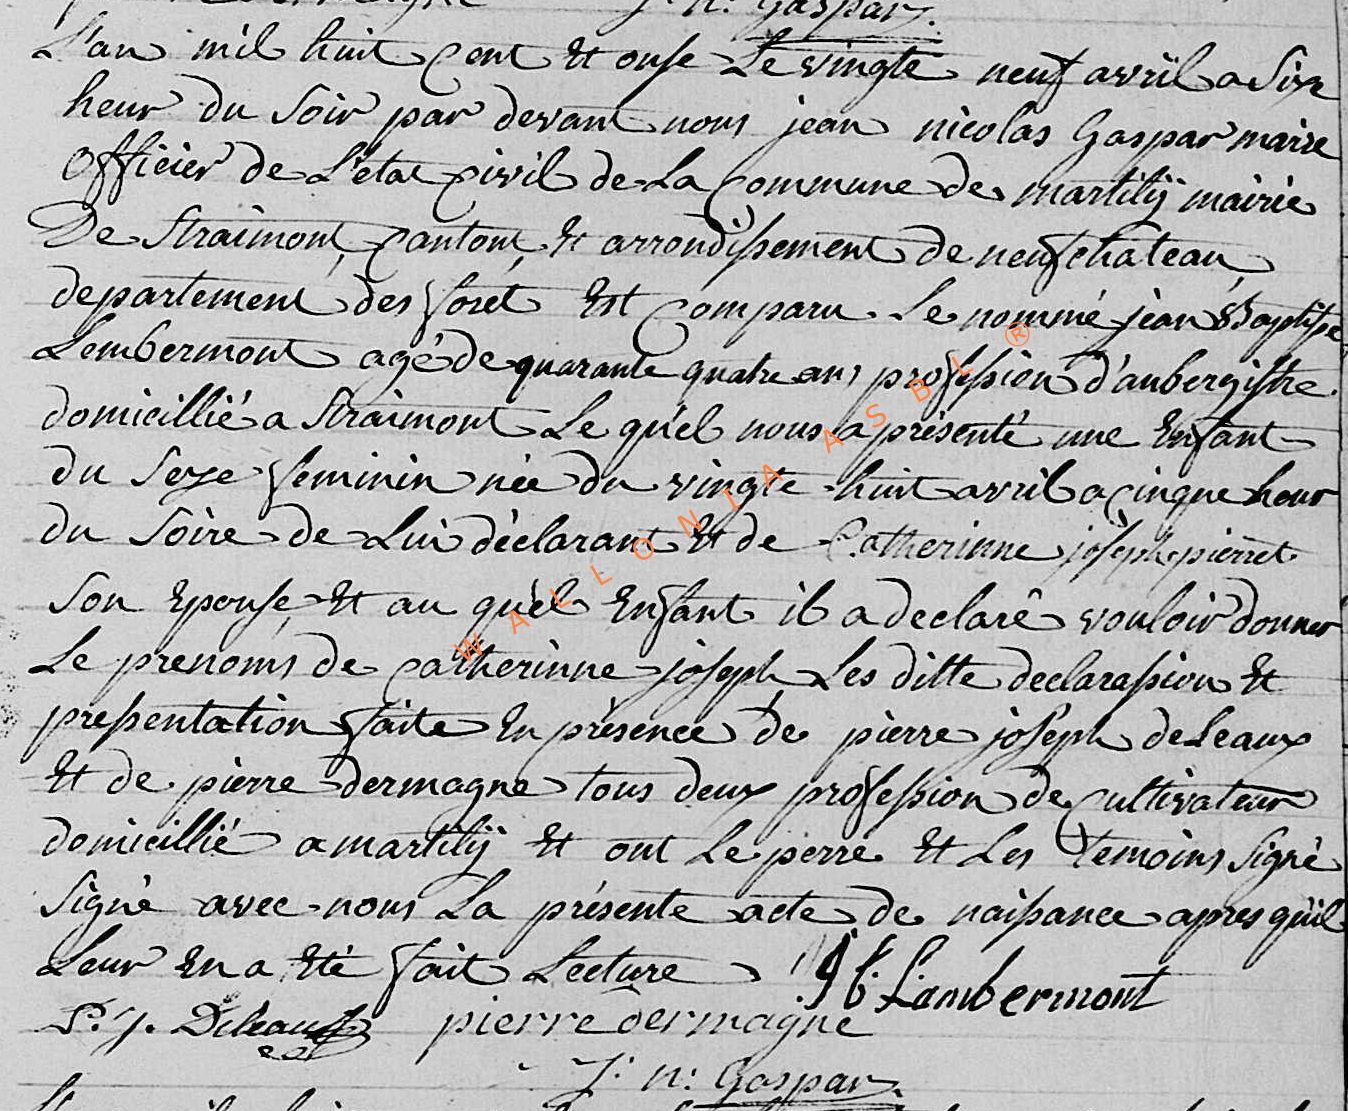 J. n. Gaspar.
L'an mil huit cent Et onse Le vingte neuf avril a Six
heur du Soir par devant nous jean nicolas Gaspar maire
Officier de L'état civil de La Commune de martilÿ mairie
De Straimont, canton, Et arrondissement de neufchateau
departement des foret Est comparu Le nommé jean Baptiste
Lembermont agé de quarante quatre ans profession d'aubergiste
domicillié a Straimont Le quel nous a présenté une Enfant
du Sexe feminin née du vingte huit avril a cinque heur
du Soire de Lui déclarant Et de Catherinne joseph pierret
Son Epouse, Et au quel Enfant il a declaré vouloir donner
Le prenoms de Catherinne joseph Les ditte declarassion Et
pressentation faite En présence de pierre joseph deLeaux
Et de pierre dermagne tous deux profession de cultivateur
domicillié a martilÿ Et ont Le perre Et Les temoins Signé
Signé avec nous La présente acte de naissance apres qu'il
Leur En a Eté fait Lecture
J b. Lambermont
P. J. Deleaux pierre dermagne
J. n. Gaspar
WALLONIA ASBL ®